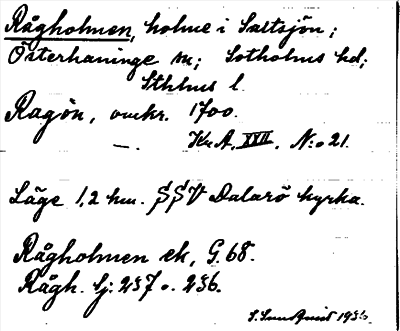 Rågholmen, holme i Saltsjön;
Österhaninge sn; Sotholms hd;
Sthlms l.
Ragön, omkr. 1700.
Kr.A. XVII. N:o 21.
Läge 1,2 km. SSV Dalarö kyrka.
Rågholmen ek, G. 68.
Rågh. lj: 237 o. 236.
1936